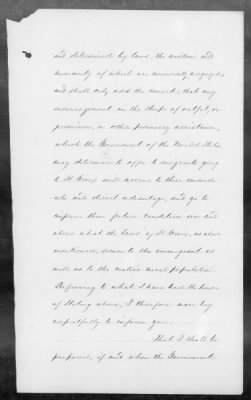 and determined by laws, the wisdom and
humanity of which are universally recognized,
and shall only add the remark, that any
encouragement in the shape of outfit, or
premium, or other pecuniary assistance,
which the Government of the United States
may determine to offer to emigrants going
to St Croix will accrue to their immedi-
ate and direct advantage, and go to
improve their future condition over and
above what the laws of St Croix, as above
mentioned, secure to the immigrant as
well as to the native rural population.
Referring to what I have had the honor
of stating above, I therefore now beg
respectfully to inform you
That I shall be
prepared, if and when the Government